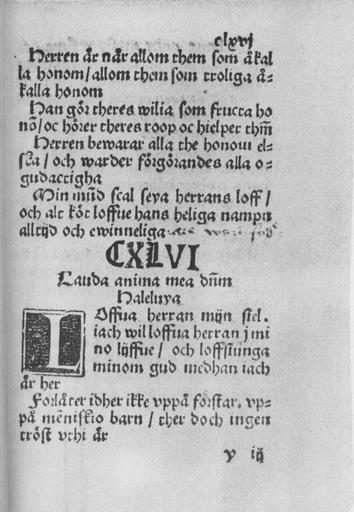 clxvj
Herren är när allom them som åkal
la honom/allom them som troliga å=
kalla honom
Han gör theres wilia som fructa ho
nō/oc hörer theres roop oc hielper thm̄
Herren bewarar alla the honom el=
ska/och warder förgörandes alla o=
gudactigha
Min mūd scal seya herrans loff/
och alt köt loffue hans heliga nampn
alltijd och ewinneliga
CXLVI
Lauda anima mea dnm̄
Haleluya
LOffua herran mijn siel.
iach wil loffua herran j mi
no lijffue/ och loffsiunga
minom gud medhan iach
är her
Forlåter idher ikke vppå förstar. vp=
på mēniskio barn/ ther doch ingen
tröst vthi är
y iij